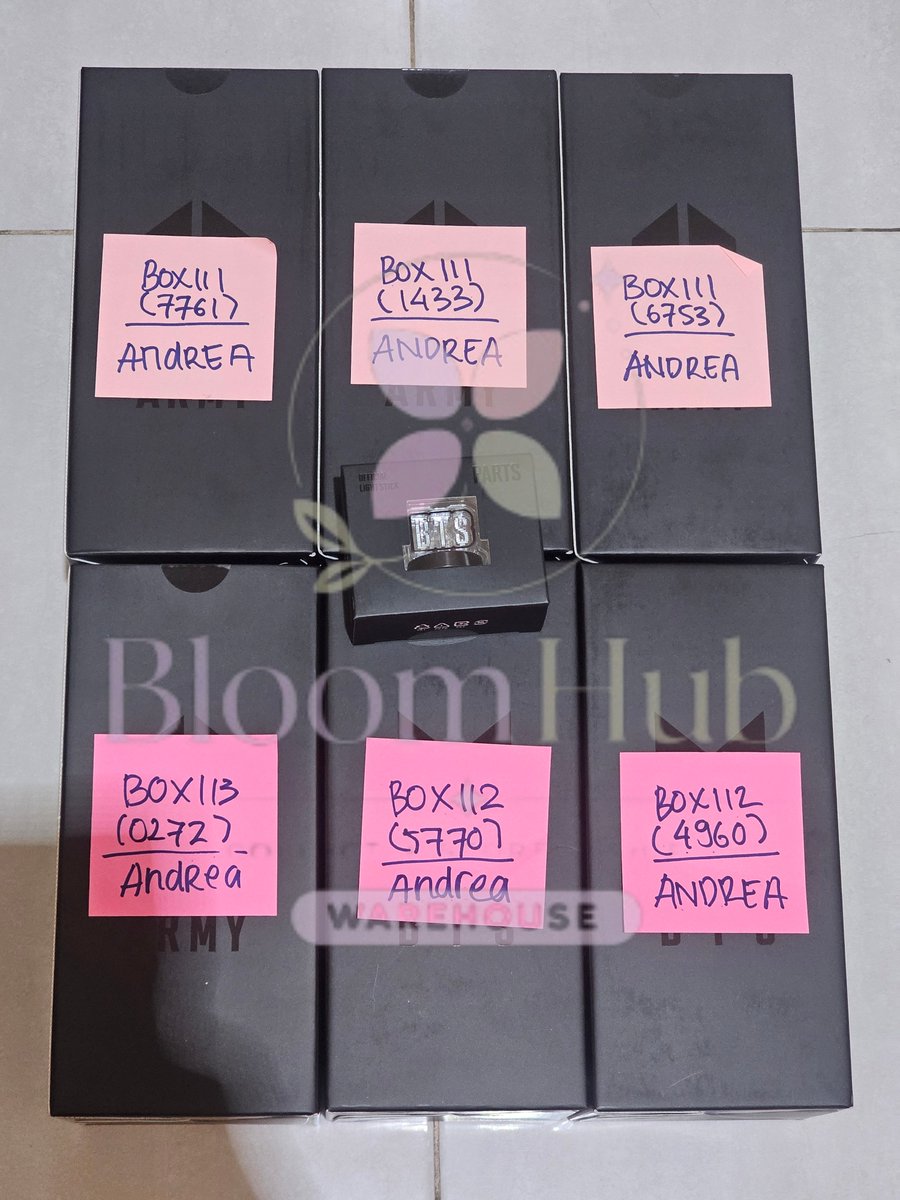 BOX111
(7761)
ANdREA
BOX111
(1433)
ANDREA
BOX111
(6753)
ANDREA
ARMY
ARMY
OFFICIAL
LIGHT STICK
PARTS
BTS
BloomHub
BOX113
(0272)
AndRea
BOX112
(5770)
Andrea
BOX112
(4960)
ANDREA
WAREHOUSE
ARMY
BTS
BTS